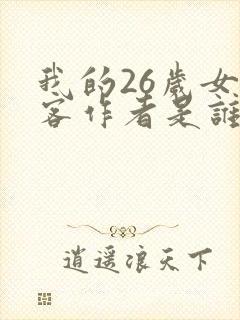 我的26歲女
客作者是誰
逍遥浪天下